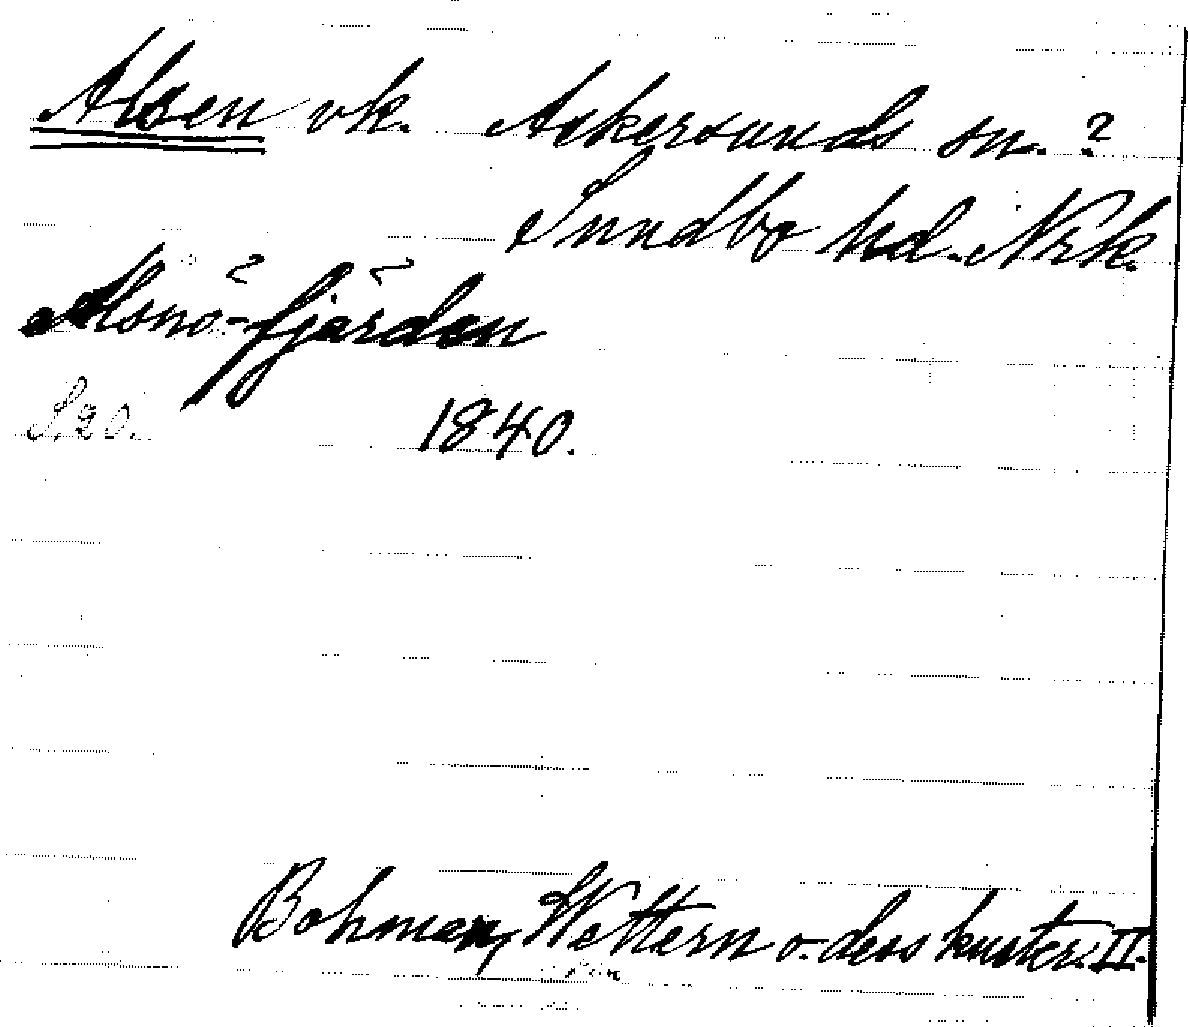 Alsen vk. Askersunds sn. ?
Sundbo hd. Nrk.
Alsnö-fjärden
S. 20. 1840.
Bohman, Wettern o. dess kuster. II.